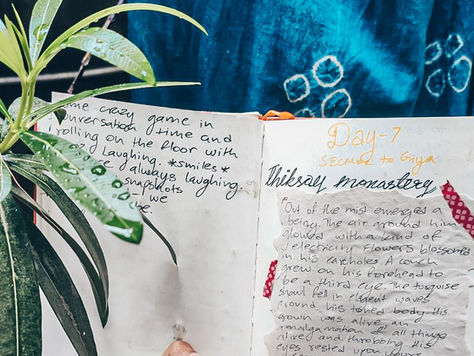 some crazy game in
conversation time and
rolling on the floor with
crazy laughing. *smiles*
always laughing.
snapshots
we
Day-7
SECMOL to Griya
Thiksay monastery
Out of the mist emerged a
being. The air around him
glowed with a kind of
electricity. Flowers blossomed
in his earholes. A conch
grew on his forehead to
be a third eye. The turquoise
shawl fell in elegant waves
around his toned body. His
gown was alive, an
amalgamation of all things
alive and throbbing. His
eyes rested upon